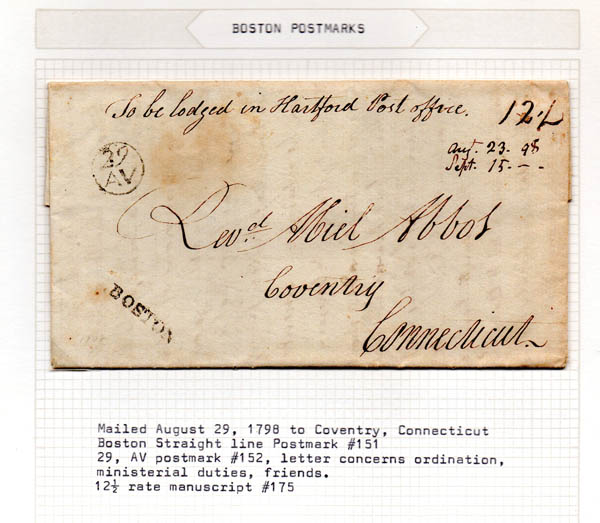 BOSTON POSTMARKS
To be lodged in Hartford Post office.
12½
Augt. 23. 98
Sept. 15. - -
29
AV
Revd. Abiel Abbot
Coventry
BOSTON
Connecticut
Mailed August 29, 1798 to Coventry, Connecticut
Boston Straight line Postmark #151
29, AV postmark #152, letter concerns ordination,
ministerial duties, friends.
12½ rate manuscript #175